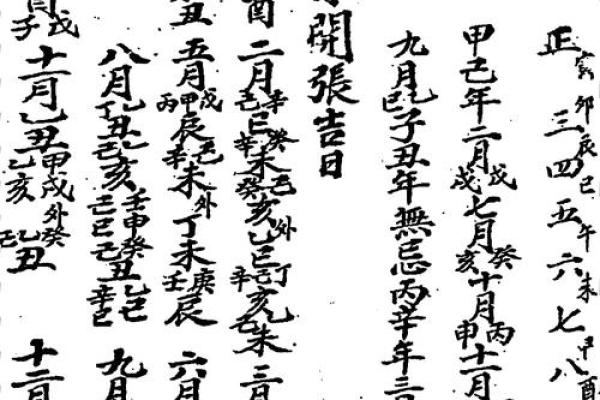 正寅卯三辰四巳五午六未七申八酉
甲己年二月戊戌七月癸亥十月丙申十一月
九月乙巳子丑年無忌丙辛年三
開張吉日
酉二月辛己巳癸辛未己癸亥外乙巳丁己辛亥乙未三月
丑五月戊甲丙辰己辛未外丁未庚壬辰六月
八月乙丁丑乙己亥壬申癸丑乙巳己巳辛巳九月
戊子十一月乙丑甲戌乙亥外癸丑十二月